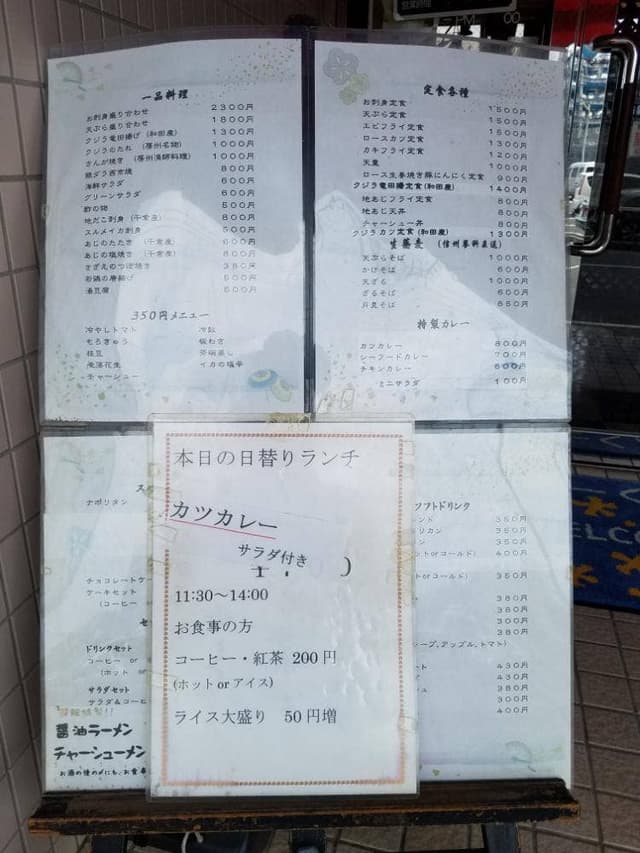 一品料理
お刺身盛り合わせ 2300円
天ぷら盛り合わせ 1800円
クジラ竜田揚げ (和田産) 1300円
クジラのたれ (房州名物) 1000円
さんが焼き (房州漁師料理) 1000円
銀ダラ西京焼 800円
海鮮サラダ 600円
グリーンサラダ 600円
酢の物 500円
地だこ刺身 (千倉産) 800円
スルメイカ刺身 500円
あじのたたき (千倉産) 600円
あじの塩焼き (千倉産) 800円
さざえのつぼ焼き 350円
若鶏の唐揚げ 500円
湯豆腐 500円
350円メニュー
冷やしトマト 冷奴
もろきゅう 板わさ
枝豆 茶碗蒸し
味落花生 イカの塩辛
チャーシュー
定食各種
お刺身定食 1500円
天ぷら定食 1500円
エビフライ定食 1500円
ロースカツ定食 1300円
カキフライ定食 1200円
天重 1000円
ロース生姜焼き豚にんにく定食 900円
クジラ竜田揚定食(和田産) 1400円
地あじフライ定食 800円
地あじ天丼 800円
チャーシュー丼 800円
クジラカツ定食(和田産) 1300円
生蕎麦 (信州蓼科直送)
天ぷらそば 1000円
かけそば 600円
天ざる 1000円
ざるそば 600円
月見そば 650円
特製カレー
カツカレー 800円
シーフードカレー 700円
チキンカレー 600円
ミニサラダ 100円
本日の日替りランチ
カツカレー
サラダ付き
11:30～14:00
お食事の方
コーヒー・紅茶 200円
(ホット or アイス)
ライス大盛り 50円増
ナポリタン
チョコレートケ
ケーキセット
(コーヒー
セ
ドリンクセット
コーヒー or
(ホット or
サラダセット
サラダ&コーヒ
醤油ラーメン
チャーシューメン
フトドリンク
ンド 350円
リカン 350円
ットorコールド) 400円
ットorコールド) 350円
380円
380円
380円
ープ,アップル,トマト)
ート 430円
ート 430円
ュ 380円
300円
400円